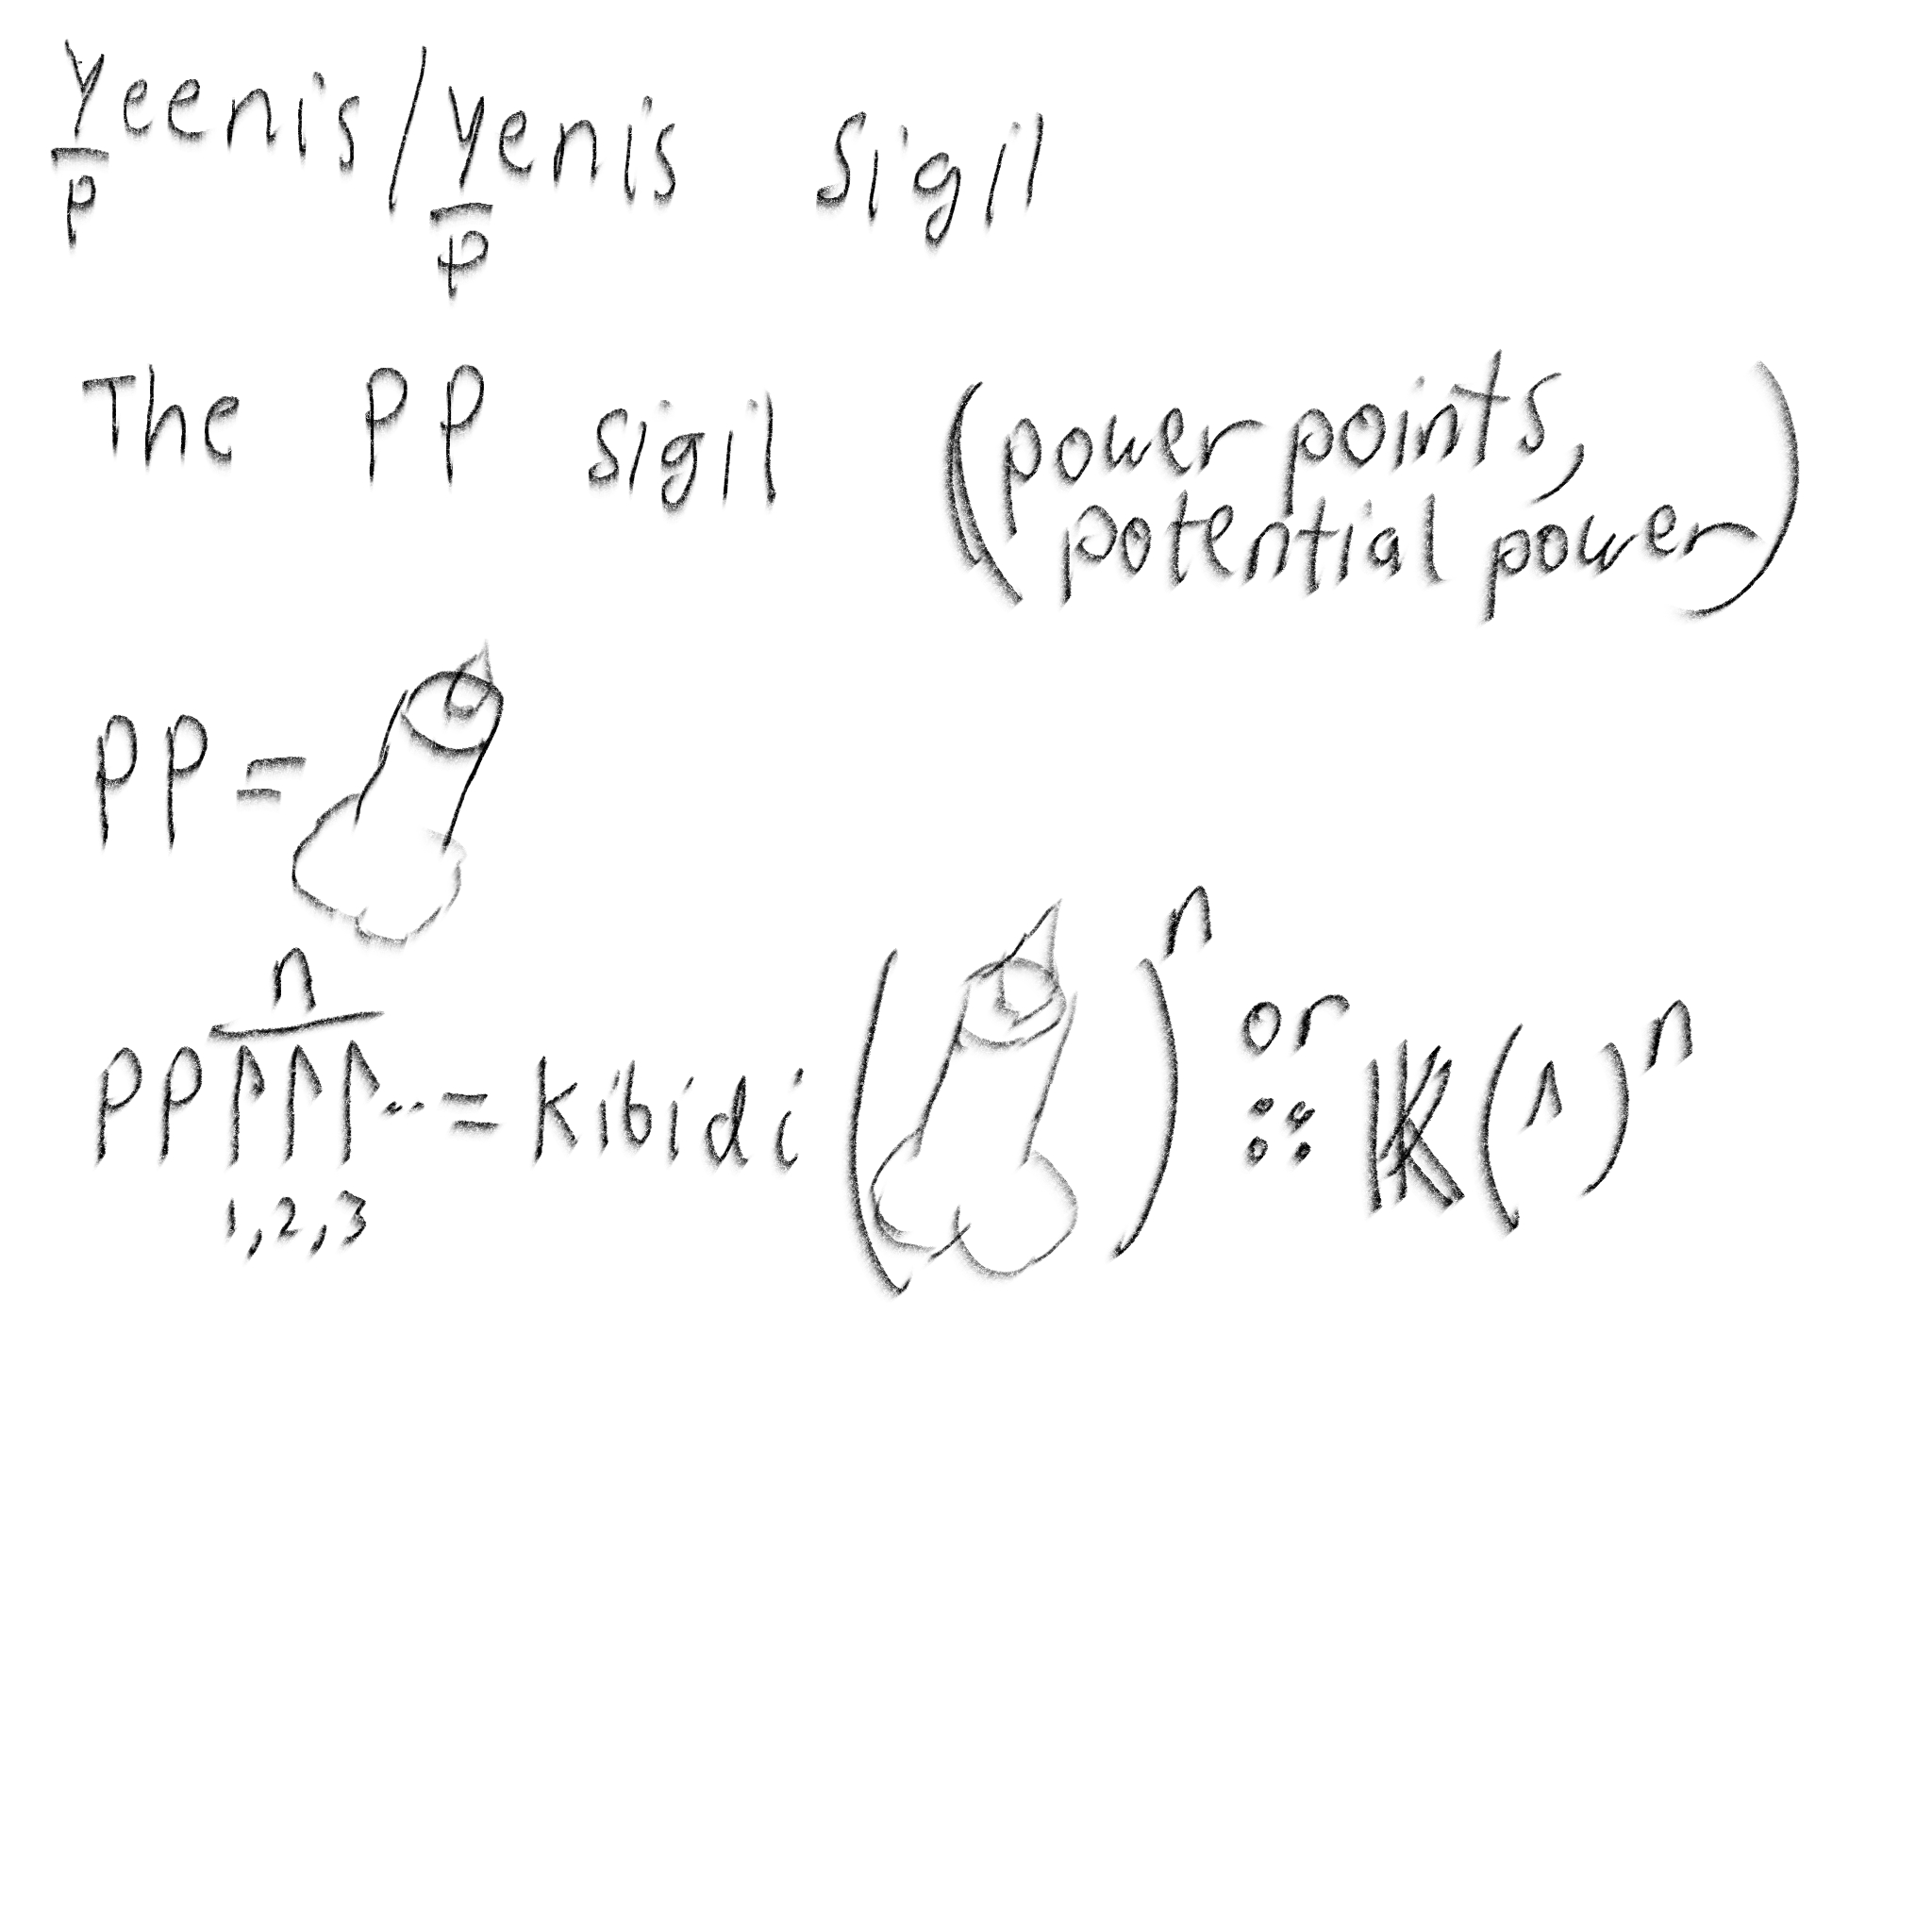 Yeenis/Yenis Sigil
P P
The PP sigil (power points,
potential power)
PP =
n
PPPPP... = kibidi ( )ⁿ or :: 𝕂(^)ⁿ
1,2,3